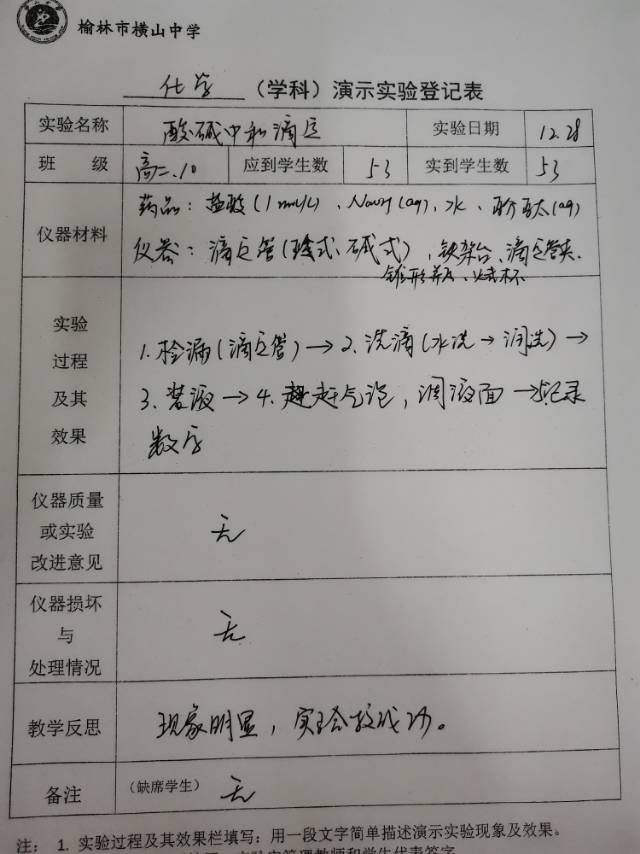 榆林市横山中学
化学（学科）演示实验登记表
实验名称 酸碱中和滴定 实验日期 12.28
班 级 高二.10 应到学生数 53 实到学生数 53
药品：盐酸(1mol/L)、NaOH(aq)、水、酚酞(aq)
仪器材料
仪器：滴定管(酸式、碱式)、铁架台、滴定管夹、
锥形瓶、烧杯
实验
过程
及其
效果
1.检漏(滴定管)→2.洗滴(水洗→润洗)→
3.装液→4.赶气泡，调液面→记录
数字
仪器质量
或实验
改进意见
无
仪器损坏
与
处理情况
无
教学反思 现象明显，实验较成功。
备注 （缺席学生） 无
注： 1. 实验过程及其效果栏填写：用一段文字简单描述演示实验现象及效果。